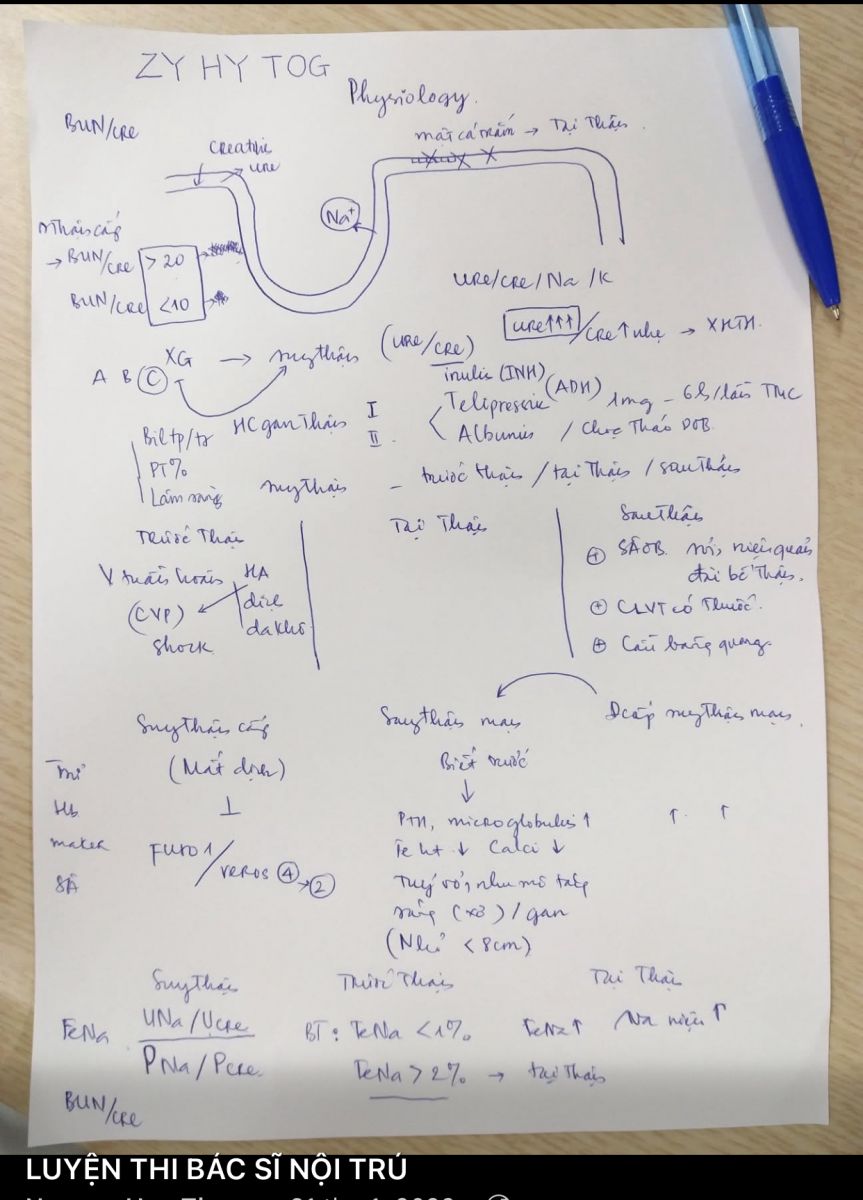 ZY HY TOG
Physiology.
BUN/CRE
Creatinie
ure
mất cá năm → Tại Thận.
Na+
Thận cấp
→ BUN/CRE > 20
BUN/CRE < 10
URE/CRE/Na/K
A B C XG → suy thận (URE/CRE)
URE↑↑↑/CRE↑ nhẹ → XHTH.
inulin (INH)
HC gan Thận I
II.
Telipressie (ADH) 1mg - 6h/lần TMC
Albumin / Chọc Tháo DOB.
Bil tp/tt
PT%
Lâm sàng
suy thận - trước thận / tại Thận / sau Thận
Trước Thận
Tại Thận
Sau Thận
V tuần hoàn HA
dịch
da khô
(CVP)
Shock
+ SÂOB. sỏi, niệu quản
đài bể Thận.
+ CLVT có Thuốc.
+ Cầu bàng quang.
Suy thận cấp
(Mất dịch)
⊥
Furo 1/Veros 4 → 2
Suy thận mạn
Biết trước
↓
PTH, microglobulin ↑
Fe ht ↓ Calci ↓
Tuỷ vỏ, nhu mô tăng
sáng (xơ) / gan
(Nhỏ < 8cm)
Đ cấp suy thận mạn.
↑ ↑
Hb
maker
SÂ
Suy thận
Trước Thận
Tại Thận
FeNa UNa/Ucre
PNa/Pcre.
BT: FeNa <1%
FeNa↑ Na niệu ↑
FeNa > 2% → tại Thận
BUN/CRE
LUYỆN THI BÁC SĨ NỘI TRÚ